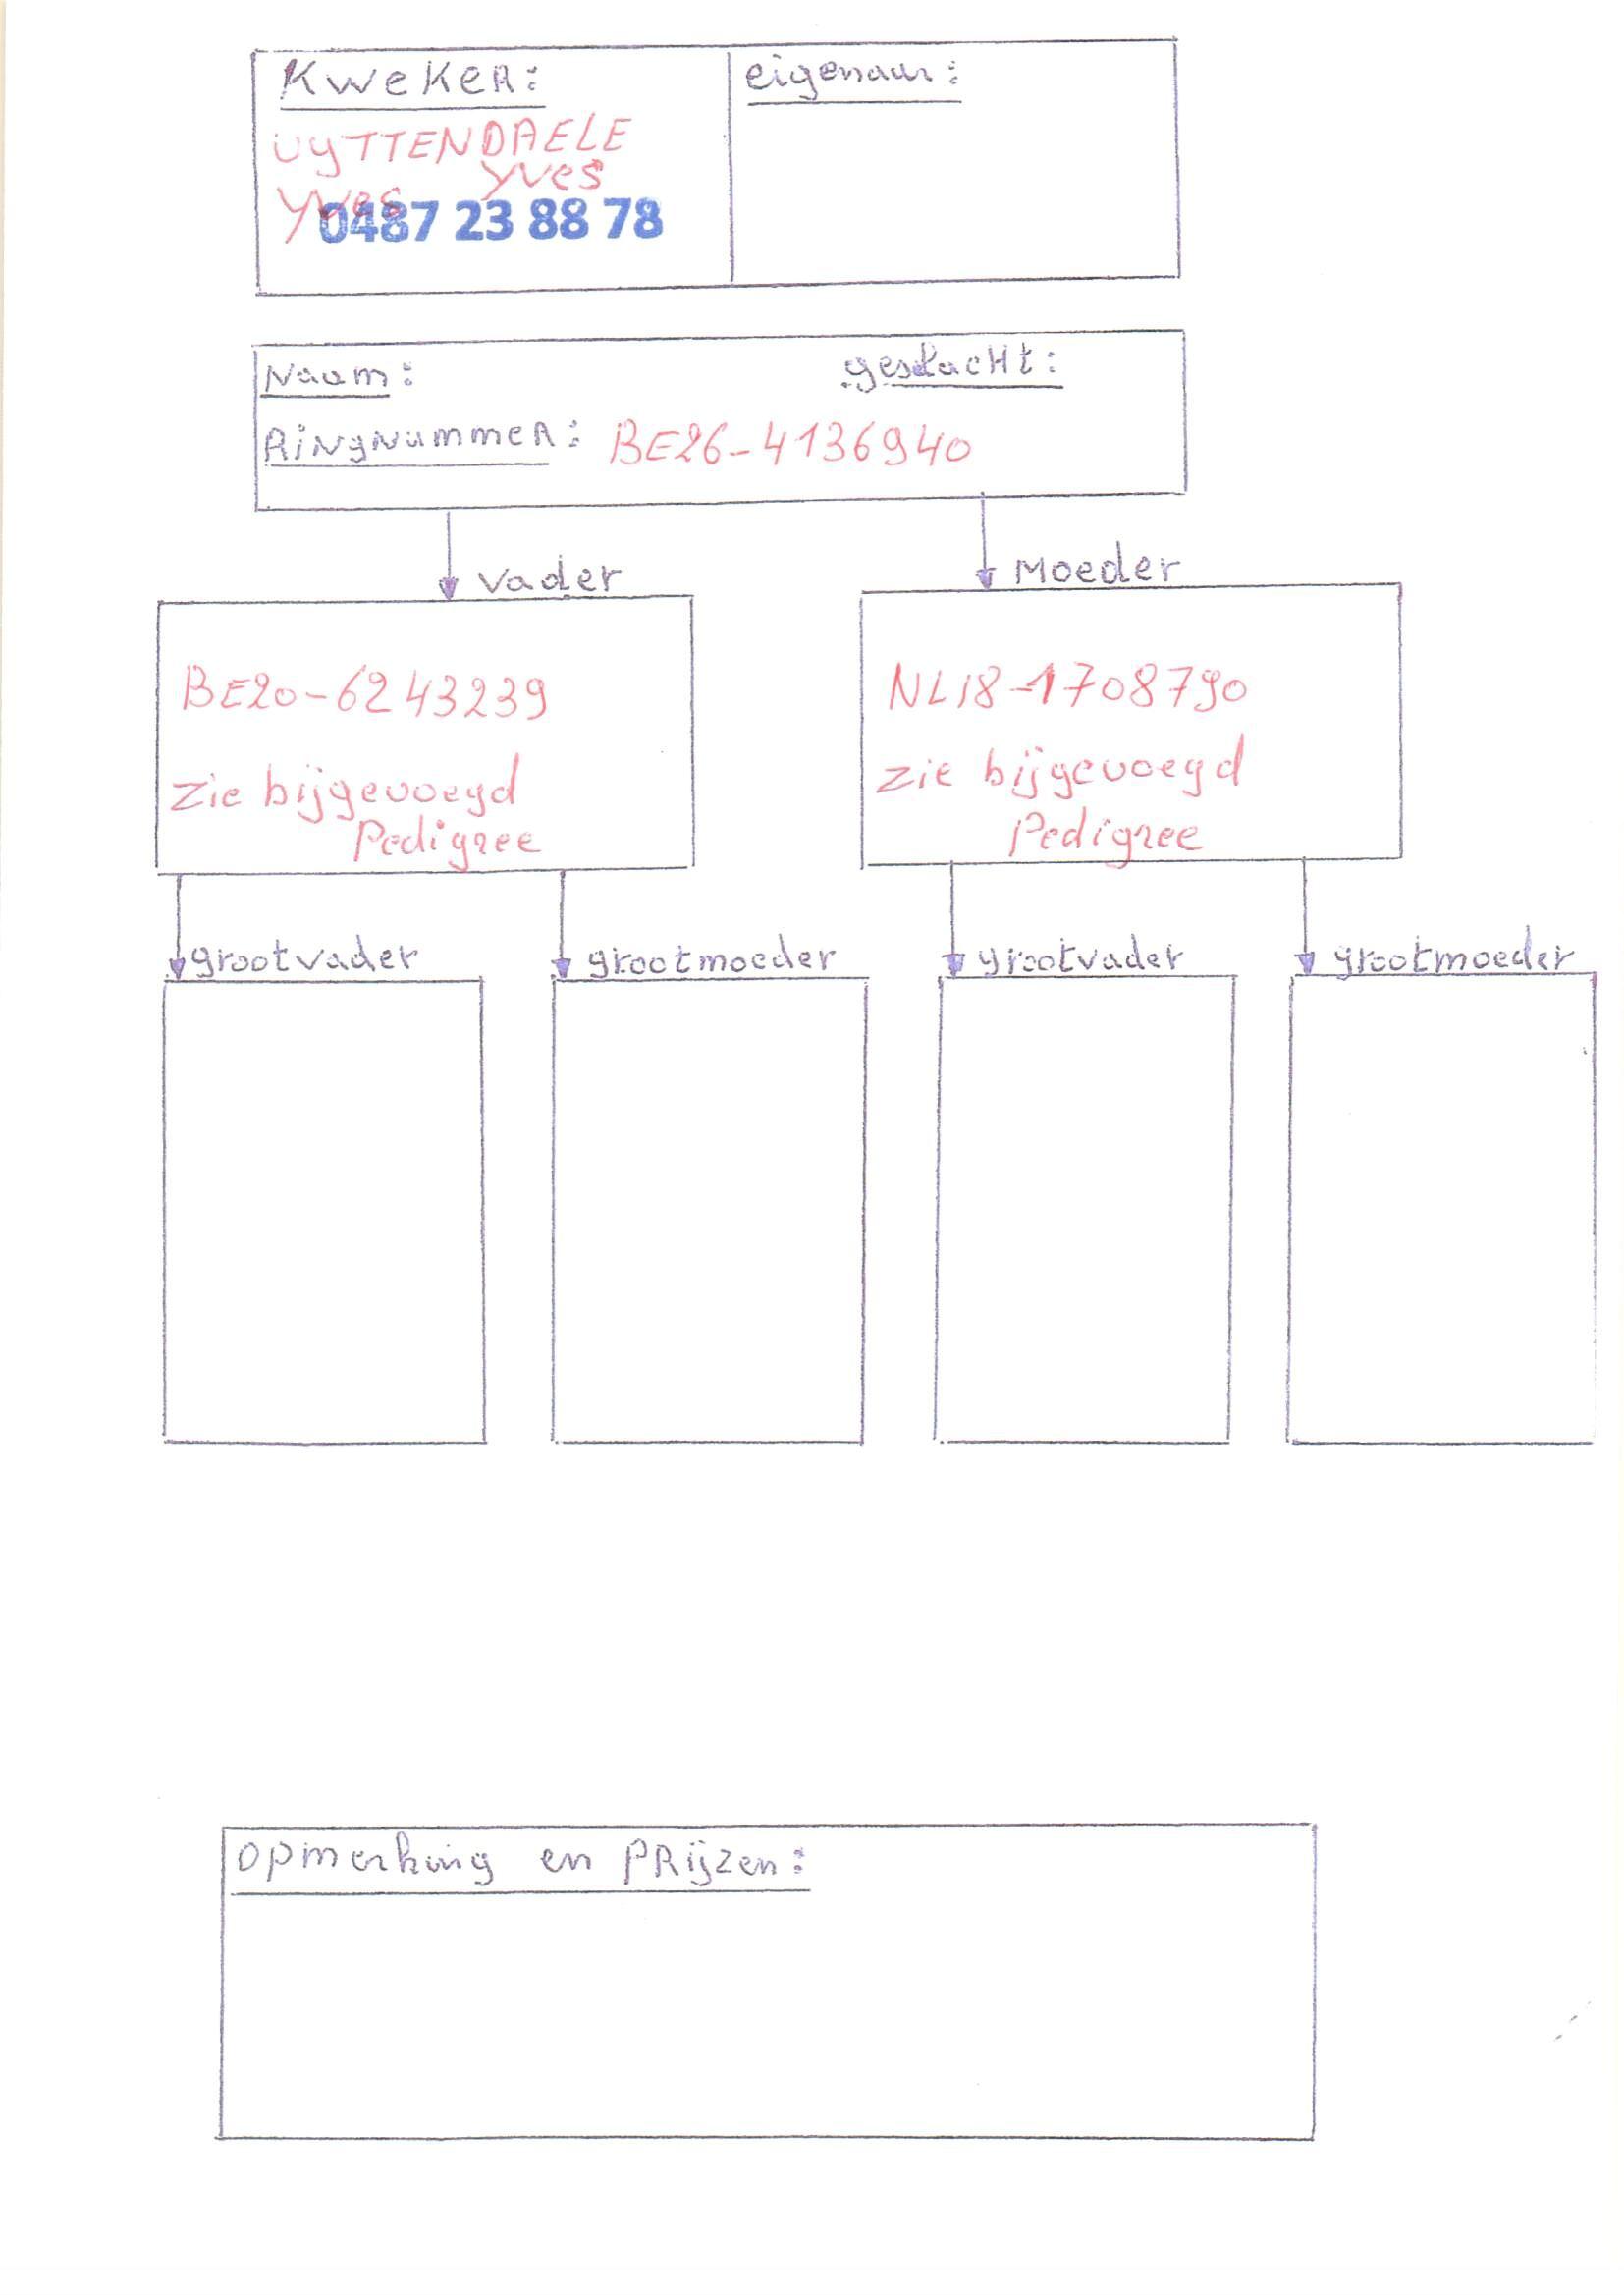 KWEKER:
eigenaar:
UYTTENDAELE
Yves
Yves
0487 23 88 78
Naam:
geslacht:
RiNgNummeR: BE26-4136940
Vader
Moeder
BE20-6243239
NL18-1708790
zie bijgevoegd
Pedigree
zie bijgevoegd
Pedigree
grootvader
grootmoeder
grootvader
grootmoeder
opmerking en PRijzen: